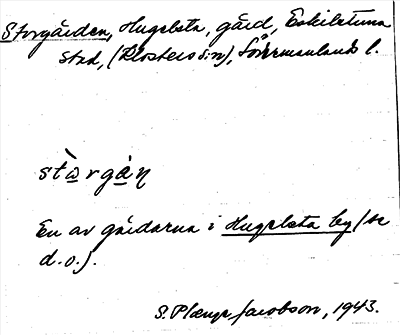 Storgården, Hugelsta, gård, Eskilstuna
stad, (Klosters sn), Södermanlands l.
stòrgà̱ṇ
En av gårdarna i Hugelsta by (se
d.o.).
S. Plænge Jacobson, 1943.